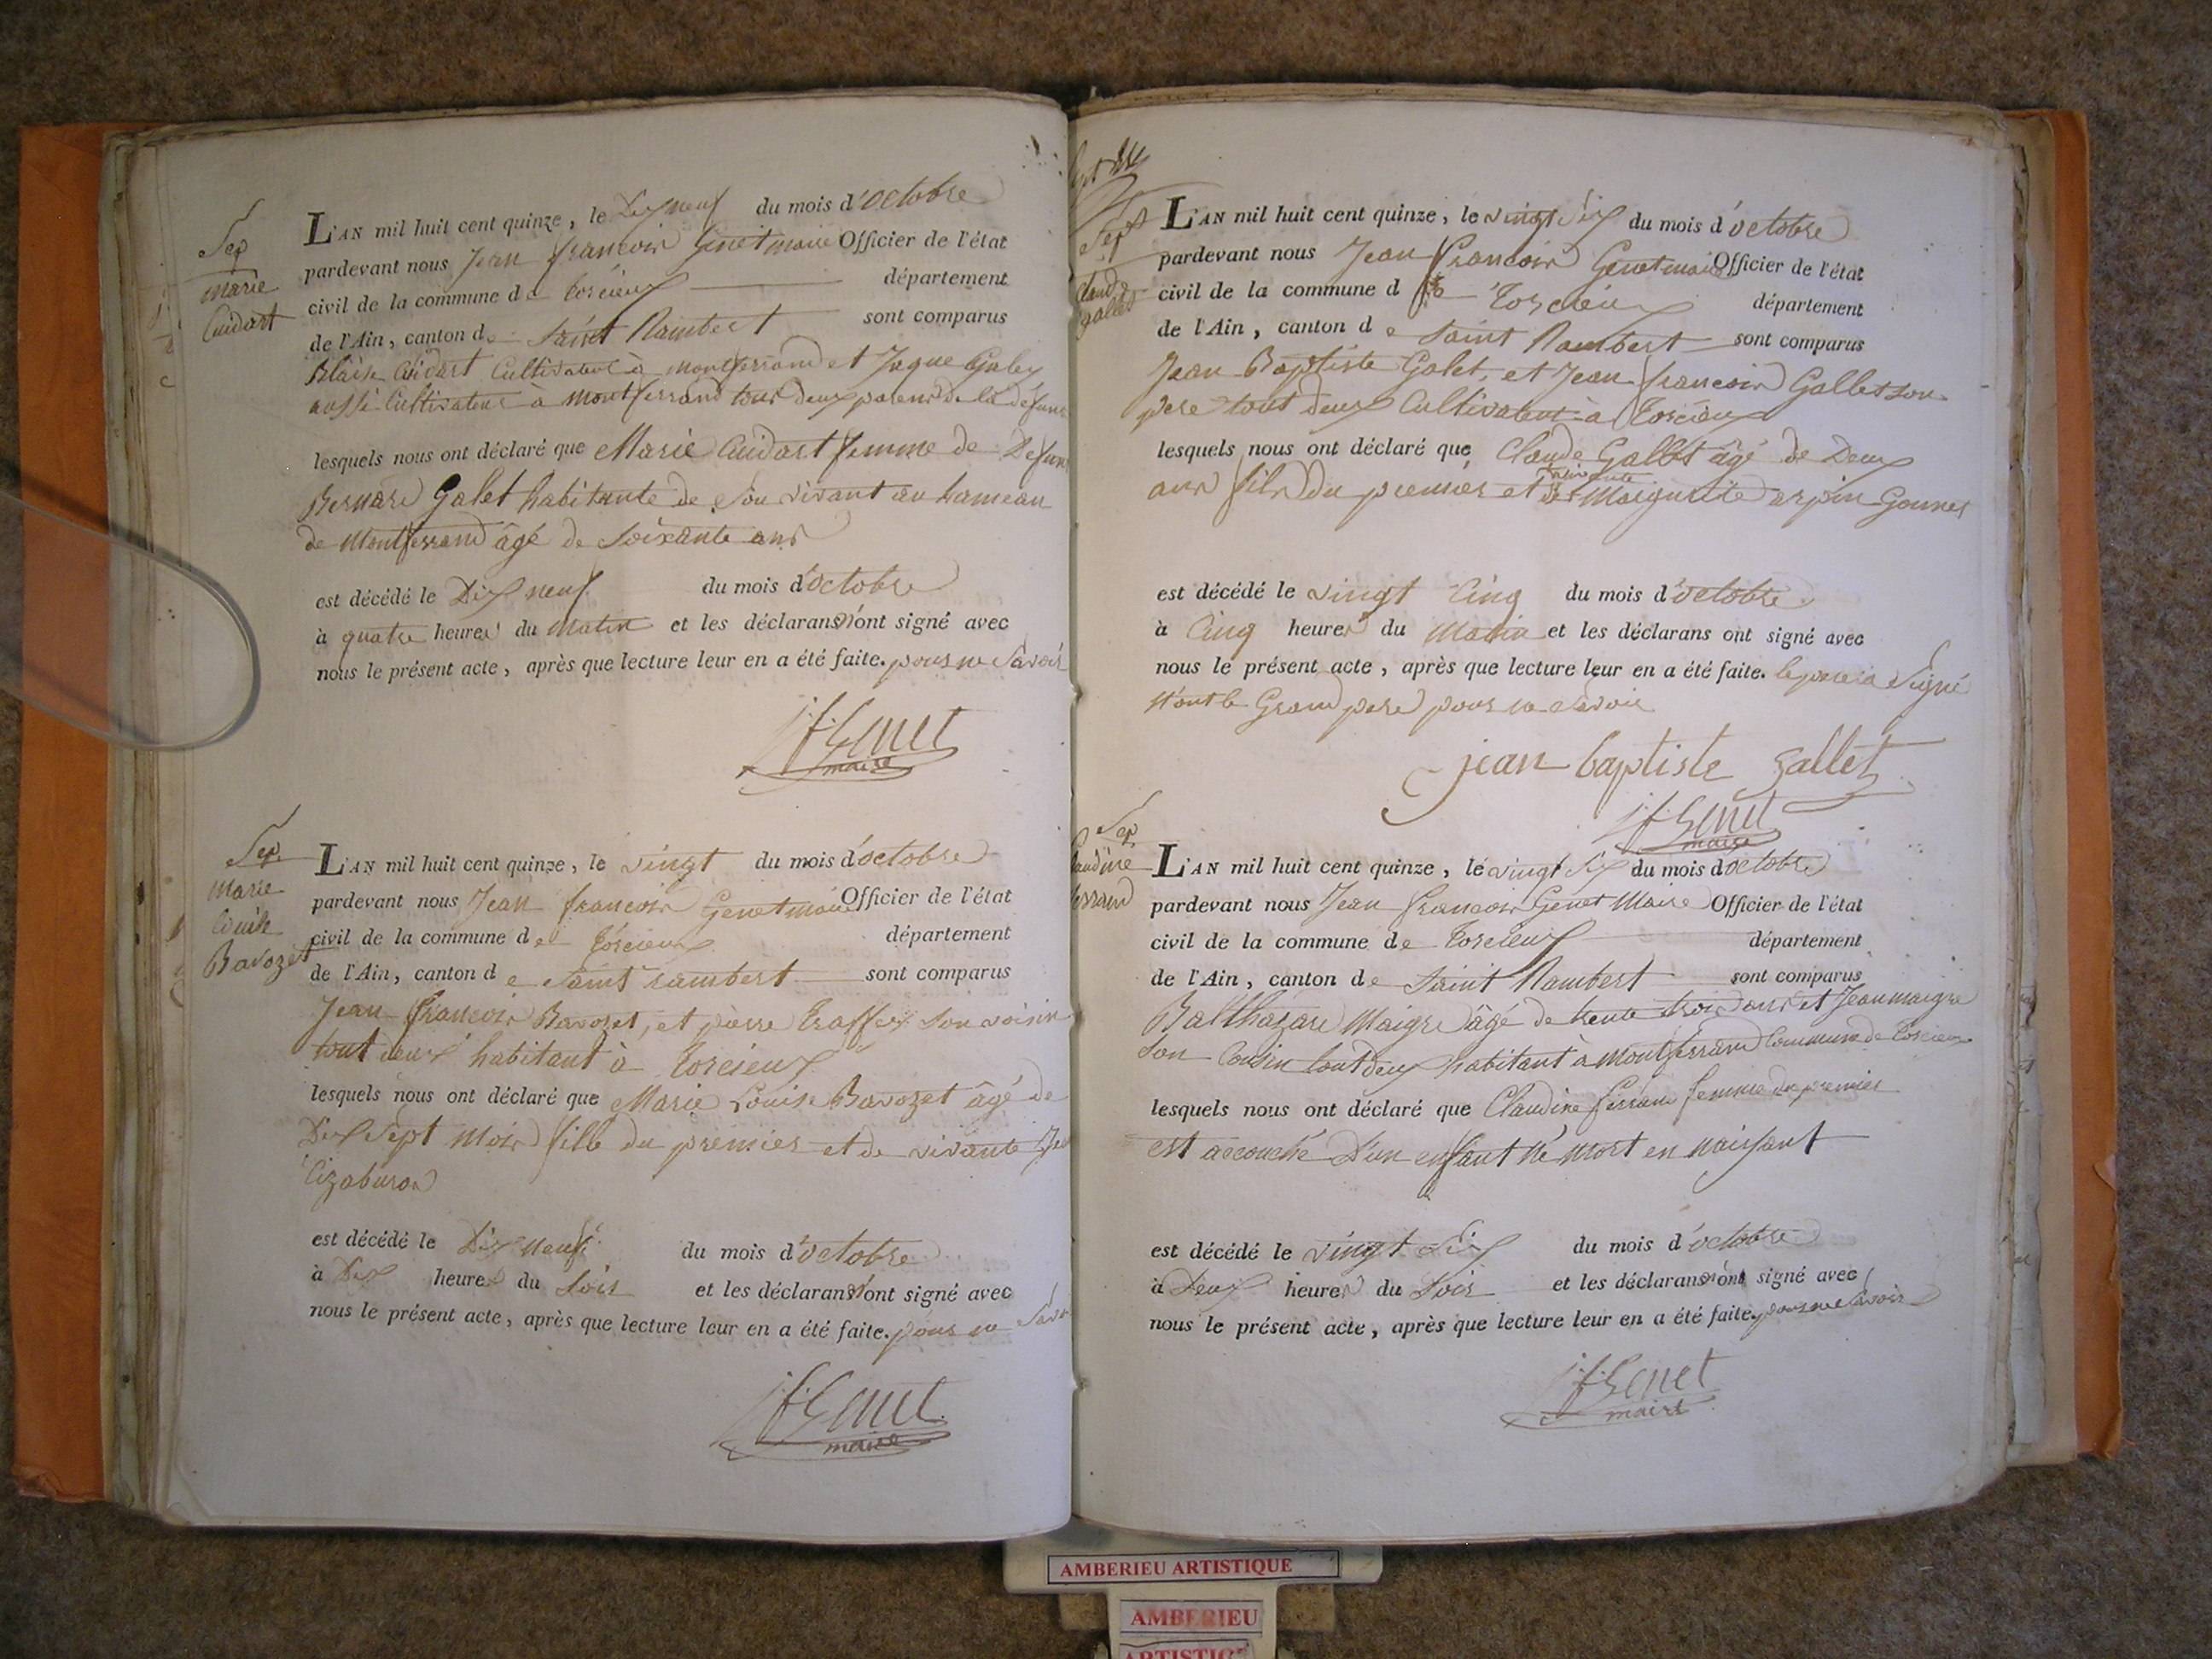 Sep
marie
Cuidart
L'AN mil huit cent quinze, le Dix neuf du mois d'octobre
pardevant nous Jean francois Genet maire Officier de l'état
civil de la commune de torcieux département
de l'Ain, canton de Saint Rambert sont comparus
Blaise Cuidart Cultivateur à montferrand et Jaque Galey
aussi Cultivateur à montferrand tous deux parens de la défun
lesquels nous ont déclaré que Marie Cuidart femme de Defun
Bernard Galet habitante de Son vivant au hameau
de montferrand âgé de Soixante ans
est décédé le Dix neuf du mois d'octobre
à quatre heures du matin et les déclarans n'ont signé avec
nous le présent acte, après que lecture leur en a été faite. pour ne Savoir
jf Genet
maire
Sep
marie
Louise
Bavozet
L'AN mil huit cent quinze, le vingt du mois d'octobre
pardevant nous Jean francois Genet maire Officier de l'état
civil de la commune de torcieux département
de l'Ain, canton de Saint rambert sont comparus
Jean francois Bavozet, et pierre traffey Son voisin
tout deux habitant à torcieux
lesquels nous ont déclaré que Marie Louise Bavozet âgé de
Dix Sept mois fille du premier et de vivante
est décédé le Dix neuf du mois d'octobre
à Dix heures du Soir et les déclarans n'ont signé avec
nous le présent acte, après que lecture leur en a été faite. pour ne Savo
jf Genet
maire
Sept
Claude
gallet
L'AN mil huit cent quinze, le vingt Six du mois d'octobre
pardevant nous Jean francois Genet maire Officier de l'état
civil de la commune d torcieux département
de l'Ain, canton de Saint Rambert sont comparus
Jean Baptiste Galet, et Jean francois Gallet son
pere tout deux Cultivateur à torcieux
lesquels nous ont déclaré que Claude Gallet âgé de Deux
ans fils du premier et de vivante Marguerite arpin
est décédé le vingt Cinq du mois d'octobre
à Cinq heures du Matin et les déclarans ont signé avec
nous le présent acte, après que lecture leur en a été faite. le pere a Signé
n'ont le Grand pere pour ne Savoir
jean baptiste gallet
jf Genet
maire
Sep
Claudine
ferrand
L'AN mil huit cent quinze, le vingt Six du mois d'octobre
pardevant nous Jean francois Genet Maire Officier de l'état
civil de la commune de torcieux département
de l'Ain, canton de Saint Rambert sont comparus
Balthazare Maigre âgé de trente trois ans et Jean maigre
Son Cousin tout deux habitant à montferrand Commune de torcieux
lesquels nous ont déclaré que Claudine ferrand femme du premier
est accouché D'un enfant né mort en naissant
est décédé le vingt Six du mois d'octobre
à Deux heures du Soir et les déclarans n'ont signé avec
nous le présent acte, après que lecture leur en a été faite. pour ne Savoir
jf Genet
maire
AMBERIEU ARTISTIQUE
AMBERIEU
ARTISTIQ